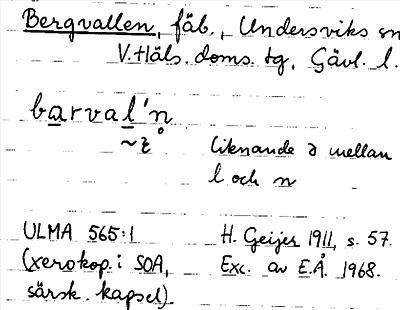 Bergvallen, fäb., Undersviks sn
V. Häls. doms. tg, Gävl. l.
barval'n
~z̥ liknande ə mellan
l och n
ULMA 565:1 H. Geijer 1911, s. 57.
(xerokop. i SOA, Exc. av E.Å. 1968.
särsk. kapsel).